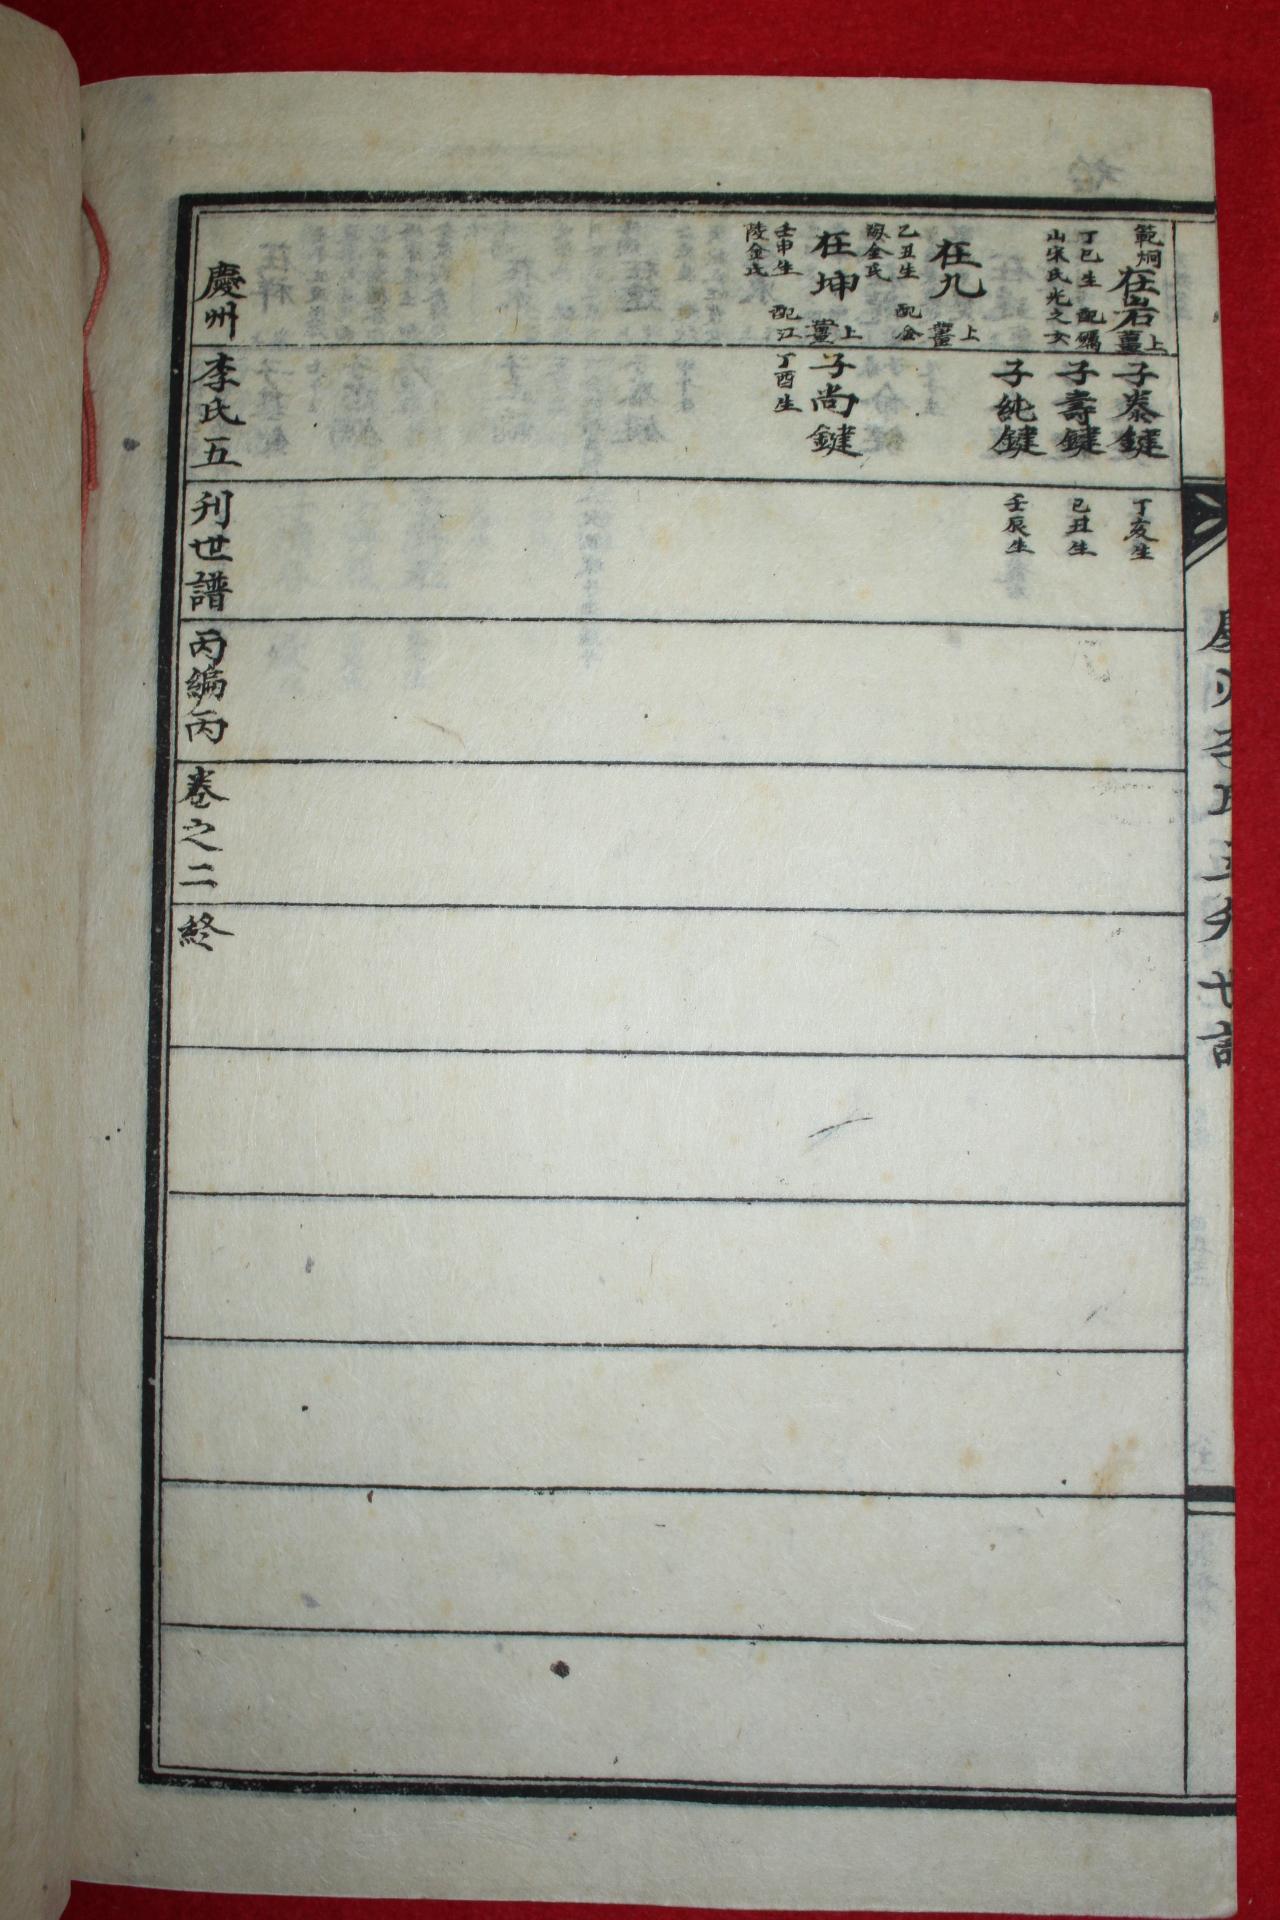 範炯
在岩
薑上
丁巳生 配礪
山宋氏光之女
子泰鍵
丁亥生
子壽鍵
己丑生
子純鍵
壬辰生
在九
薑上
乙丑生 配金
海金氏
在坤
薑上
壬申生 配江
陵金氏
子尚鍵
丁酉生
慶州李氏五刋世譜丙編丙卷之二終
慶州李氏五刋世譜